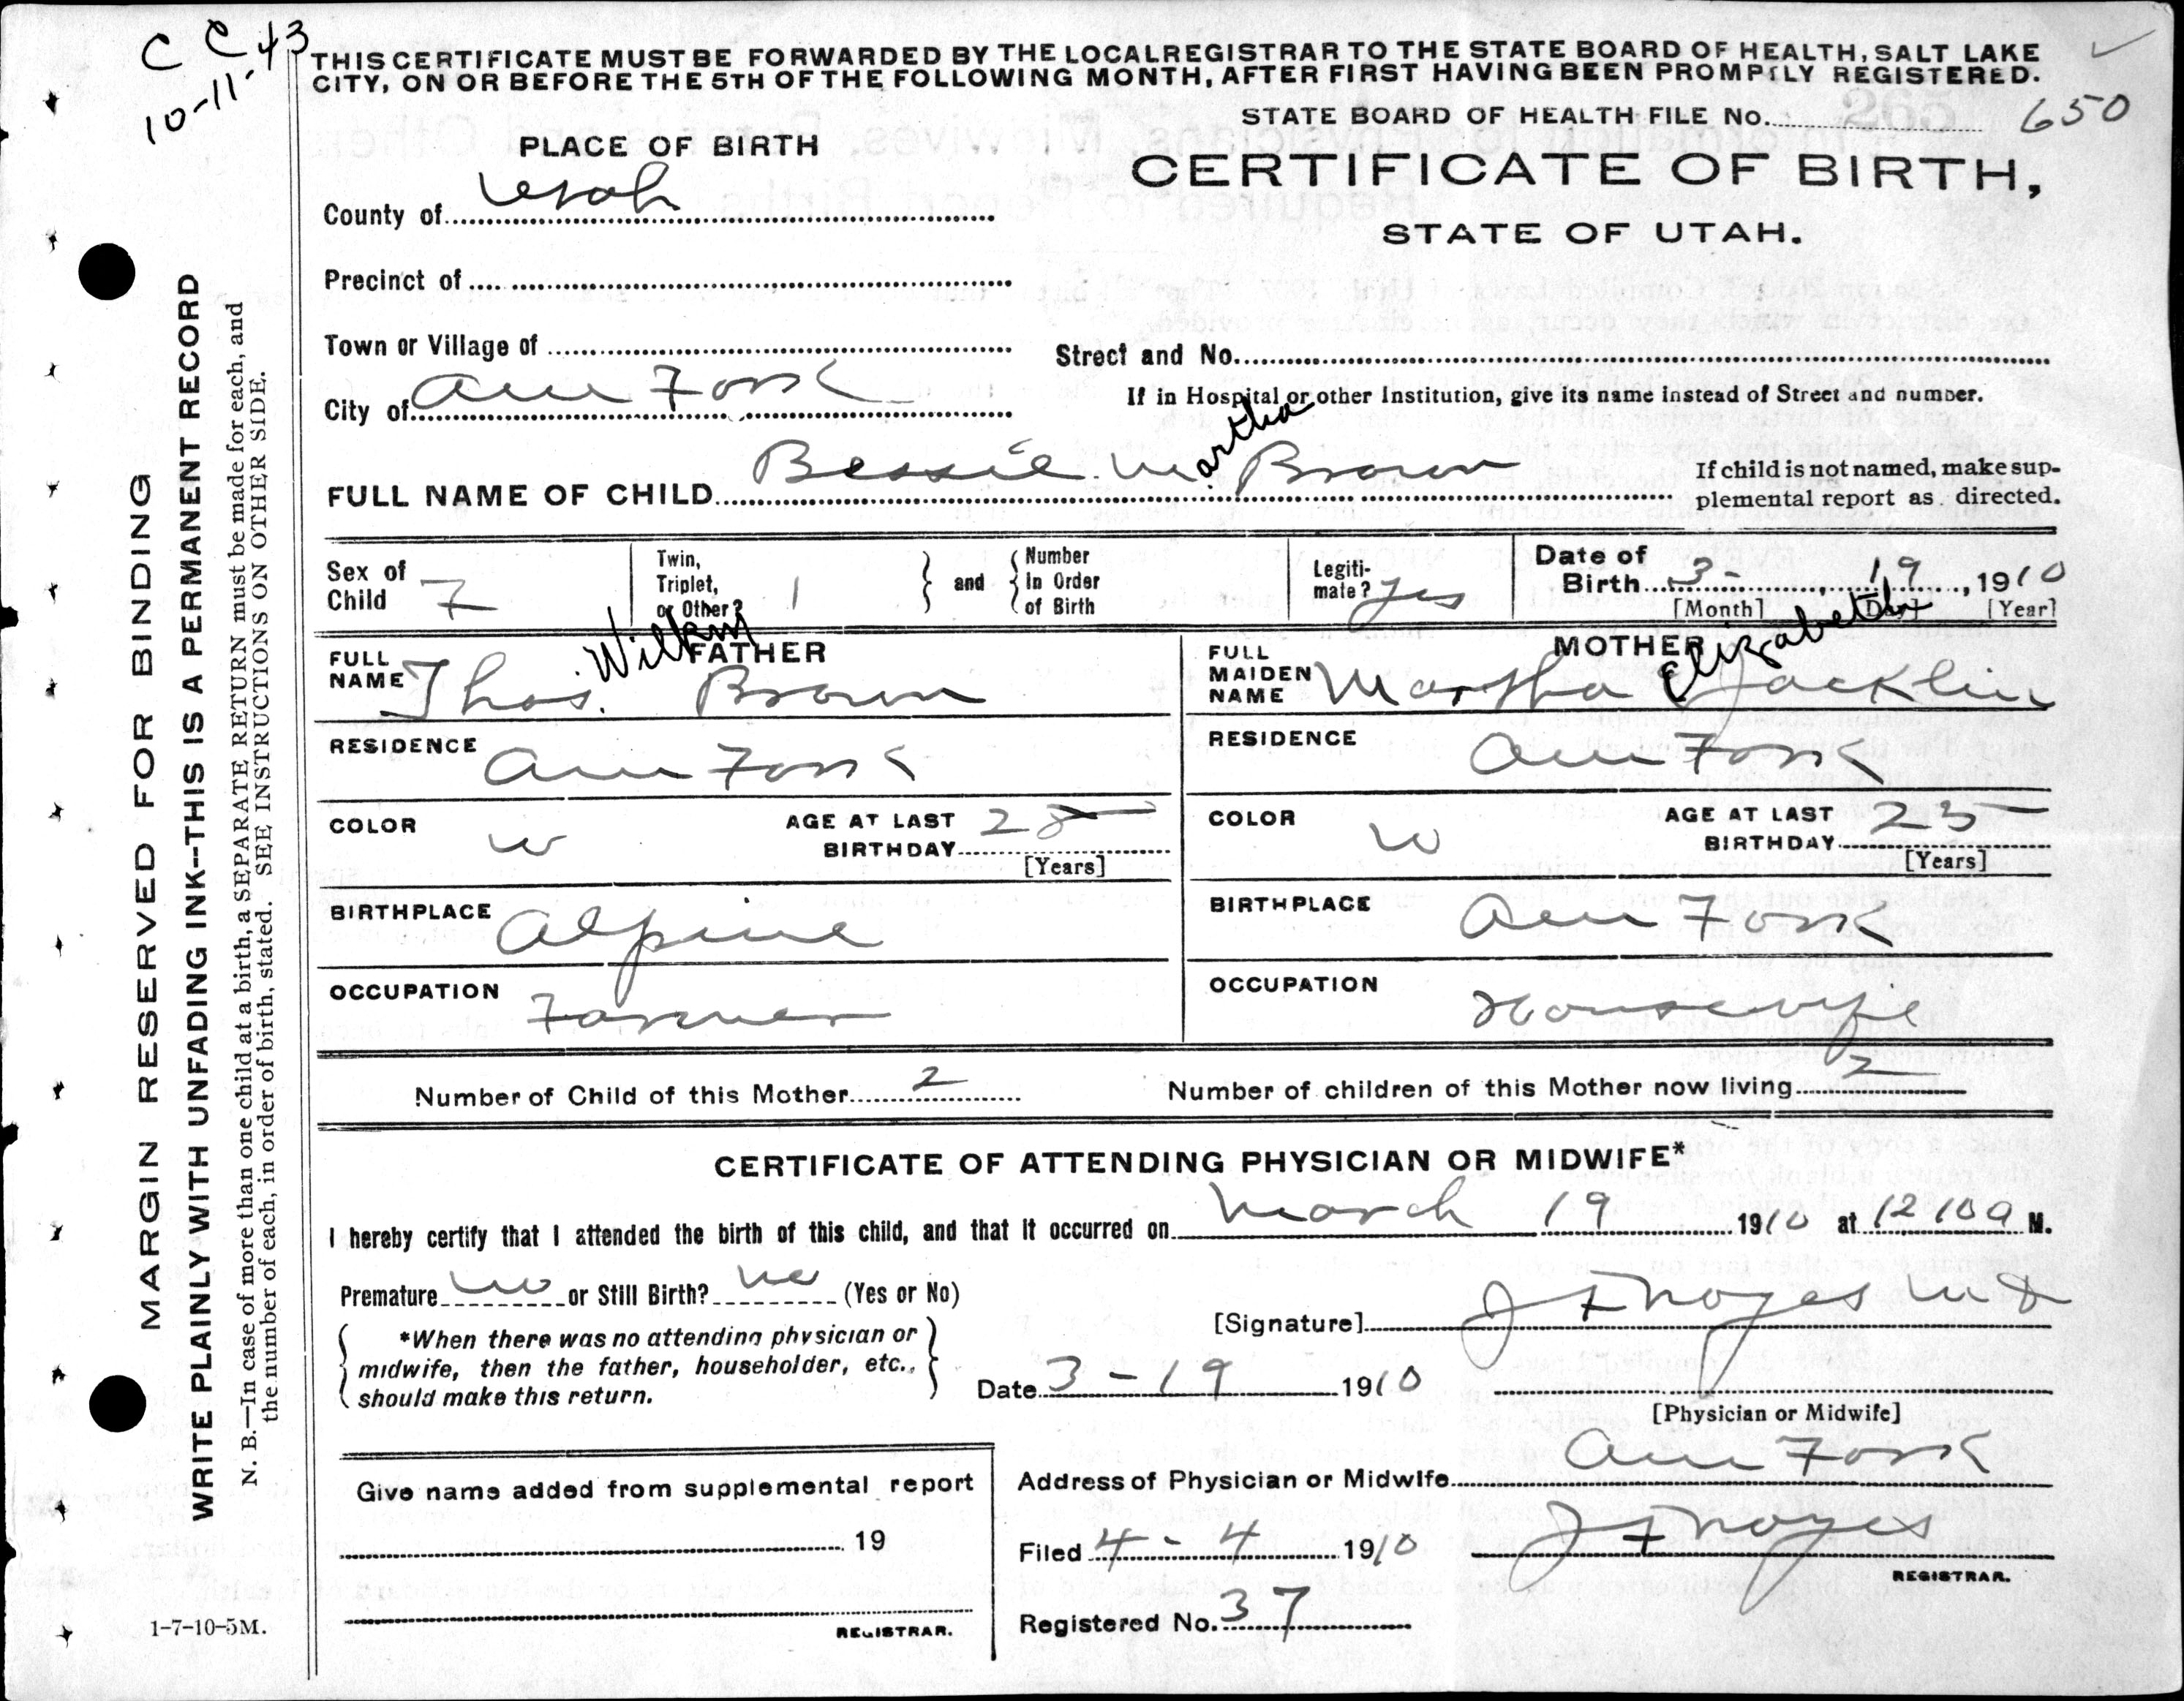 C C 43
10-11-
THIS CERTIFICATE MUST BE FORWARDED BY THE LOCAL REGISTRAR TO THE STATE BOARD OF HEALTH, SALT LAKE
CITY, ON OR BEFORE THE 5TH OF THE FOLLOWING MONTH, AFTER FIRST HAVING BEEN PROMPTLY REGISTERED.
STATE BOARD OF HEALTH FILE No. 650
PLACE OF BIRTH
CERTIFICATE OF BIRTH,
STATE OF UTAH.
County of Utah
Precinct of
Town or Village of
Street and No.
City of Am Fork
If in Hospital or other Institution, give its name instead of Street and number.
FULL NAME OF CHILD Bessie Martha Brown
If child is not named, make sup-
plemental report as directed.
Sex of
Child F
Twin,
Triplet,
or Other? 1
and
Number
In Order
of Birth
Legiti-
mate? Yes
Date of
Birth 3 - 19, 1910
[Month] [Day] [Year]
FATHER
FULL
NAME Thos. Wilkin Brown
MOTHER
FULL
MAIDEN
NAME Martha Elizabeth Jacklin
RESIDENCE Am Fork
RESIDENCE Am Fork
COLOR W
AGE AT LAST
BIRTHDAY 28
[Years]
COLOR W
AGE AT LAST
BIRTHDAY 25
[Years]
BIRTHPLACE Alpine
BIRTHPLACE Am Fork
OCCUPATION Farmer
OCCUPATION Housewife
Number of Child of this Mother 2
Number of children of this Mother now living 2
CERTIFICATE OF ATTENDING PHYSICIAN OR MIDWIFE*
I hereby certify that I attended the birth of this child, and that it occurred on March 19 1910 at 12 10 a M.
Premature no or Still Birth? no (Yes or No)
*When there was no attending physician or
midwife, then the father, householder, etc.,
should make this return.
[Signature] J F Noyes M D
Date 3 - 19 1910
[Physician or Midwife]
Address of Physician or Midwife Am Fork
Give name added from supplemental report
19
REGISTRAR.
Filed 4 - 4 1910 J F Noyes
REGISTRAR.
Registered No. 37
1-7-10-5M.
MARGIN RESERVED FOR BINDING
WRITE PLAINLY WITH UNFADING INK--THIS IS A PERMANENT RECORD
N. B.—In case of more than one child at a birth, a SEPARATE RETURN must be made for each, and
the number of each, in order of birth, stated. SEE INSTRUCTIONS ON OTHER SIDE.